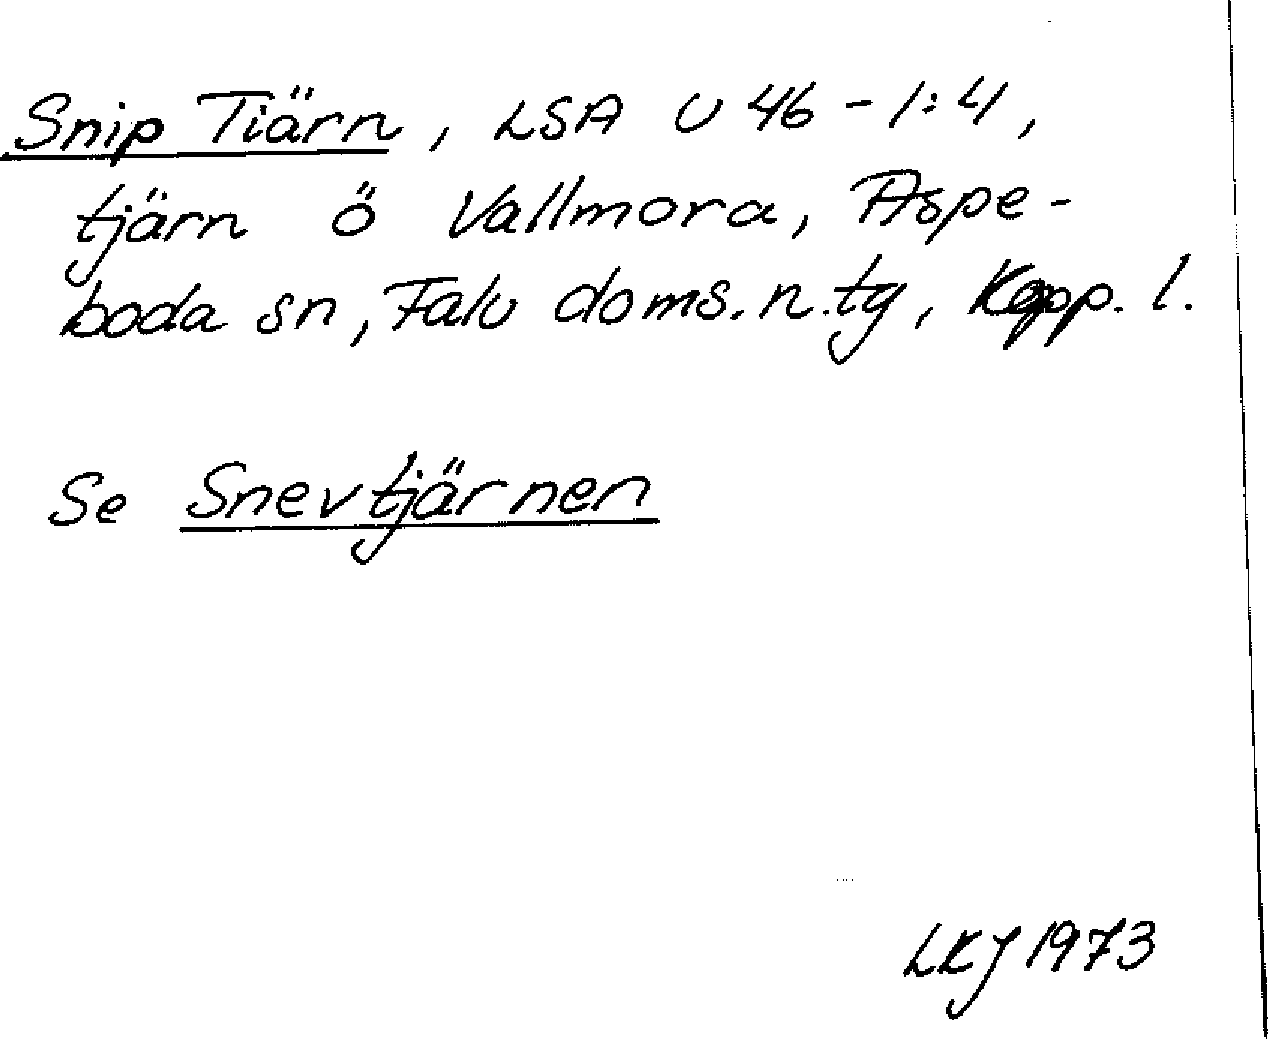 Snip Tiärn, LSA U 46 - 1:4,
tjärn ö Vallmora, Aspe-
boda sn, Falu doms.n.tg, Kopp. l.
Se Snevtjärnen
LKJ 1973